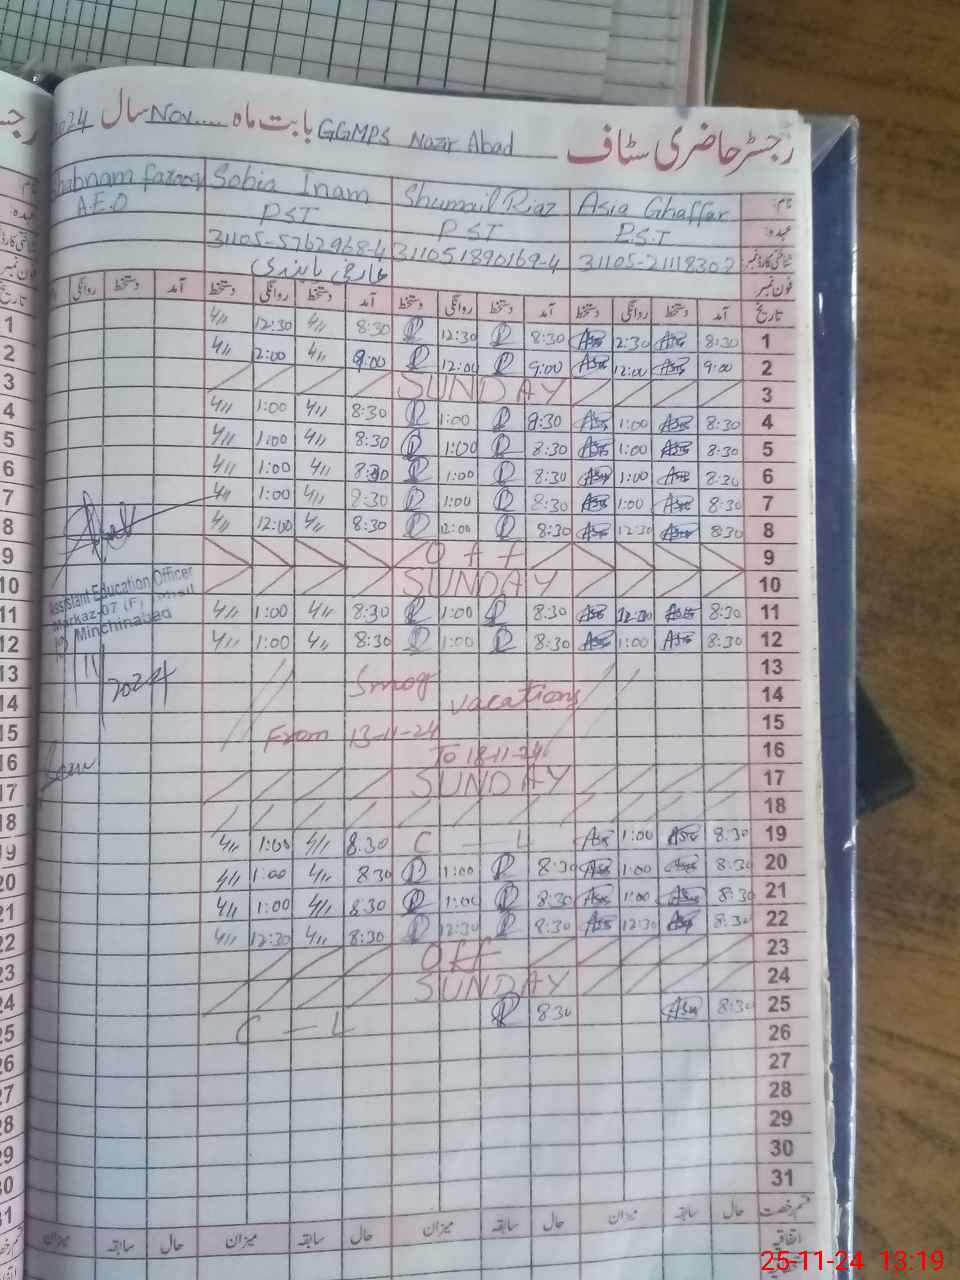 رجسٹر حاضری سٹاف GGMPS Nazir Abad بابت ماہ Nov..... سال 2024
نام: Asia Ghaffar Shumail Riaz Sobia Inam Shabnam farooq
عہدہ: P.S.T P.ST PST A.E.O
شناختی کارڈ نمبر 31105-2111830 311051890169-4 31105-5762968-4
فون نمبر عارضی پابندی
تاریخ آمد دستخط روانگی دستخط آمد دستخط روانگی دستخط آمد دستخط روانگی دستخط آمد دستخط روانگی
1 8:30 2:30 8:30 12:30 8:30 12:30
2 9:00 12:00 9:00 12:00 9:00 2:00
3 SUNDAY
4 8:30 1:00 1:00 8:30 1:00
5 8:30 1:00 8:30 1:00 8:30 1:00
6 8:30 1:00 8:30 1:00 8:30 1:00
7 8:30 1:00 8:30 1:00 8:30 1:00
8 8:30 12:30 8:30 12:00 8:30 12:00
9 Off
10 SUNDAY
Assistant Education Officer
Markaz-07 (F)
Minchinabad
2024
11 8:30 8:30 1:00 8:30 1:00
12 8:30 1:00 8:30 1:00 8:30 1:00
13 Smog
14 vacations
15 From 13-11-24
16 To 18-11-24
17 SUNDAY
18
19 8:30 1:00 C — L 8:30 1:00
20 8:30 1:00 8:30 1:00 8:30 1:00
21 8:30 1:00 8:30 1:00 8:30 1:00
22 8:30 12:30 8:30 12:30 8:30 12:30
23 Off
24 SUNDAY
25 8:30 8:30 C — L
26
27
28
29
30
31
قسم رخصت حال سابقہ میزان حال سابقہ میزان حال سابقہ میزان حال سابقہ میزان
اتفاقیہ
25-11-24 13:19